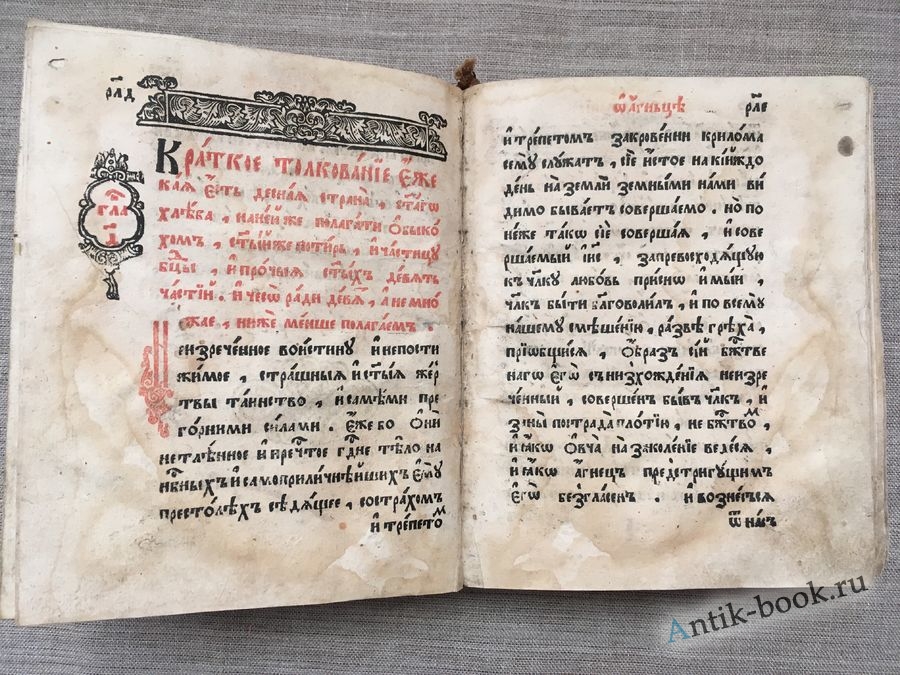 р҃лд
Кра́ткое толкова́нїе є҆́же
гла҃
і҃
ка́ѧ є҆́сть десна́ѧ страна̀, ст҃а́гѡ
хлѣ́ба, на не́йже полага́ти ѡ҆быко
хомъ, ст҃ы́йже поти́рь, и҆ части́цу
бцⷣы, и҆ про́чыѧ ст҃ы́хъ де́вѧть
часті́й. и҆ чесѡ̀ ра́ди де́вѧ, а҆ не мно́
жае, ниже ме́нше полага́емъ.
Неизрече́нное вои́стину и҆ непости
жи́мое, стра́шныѧ и҆ ст҃ы́ѧ же́р
твы та́инство, и҆ самѣ́ми пре
го́рними си́лами. є҆́же бо ѻ҆нѝ
нетлѣ́нное и҆ пречⷭ҇тое гдⷭ҇не тѣ́ло на
нбⷭ҇ныхъ и҆ самоприли́чнѣйшихъ є҆мꙋ̀
престо́лѣхъ сѣдѧ́щее, со стра́хом
и҆ тре́пето
м
ѡ҆ а҆́гньцѣ
р҃ле
и҆ тре́петомъ закрове́нни кри́лома
семꙋ̀ слꙋ́жатъ, сїѐ и҆́стое на кі́йждо
де́нь на землѝ земны́ми на́ми ви
димо быва́етъ соверша́емо. но по
не́же та́кѡ сїѐ соверша́ѧ, и҆ сове
рша́емый і҆и҃с, за превосходѧ́щꙋю
къ чл҃кꙋ любо́вь при́снѡ и҆мы́й,
чл҃къ бы́ти бл҃говоли́лъ, и҆ по всемꙋ̀
на́шемꙋ смѣше́нїю, ра́звѣ грѣха̀,
прїѡбщи́сѧ, ѻ҆́бразъ сі́й бжⷭ҇тве
нагѡ є҆гѡ̀ снизхожде́нїѧ неизре
че́нный, соверше́нъ бы́въ чл҃къ, и҆
з на́ пострада̀ пло́тїю, не бжⷭ҇тво
м
и҆ ꙗ҆́кѡ ѻ҆вча̀ на заколе́нїе веде́сѧ,
и҆ ꙗ҆́кѡ а҆́гнецъ пред̾стригꙋ́щимъ
є҆гѡ̀ безгла́сенъ. и҆ вознесы́сѧ
ѿ на́съ
Antik-book.ru